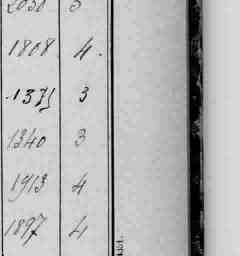 1808 4.
1375 3
1340 3
1913 4
1897 4